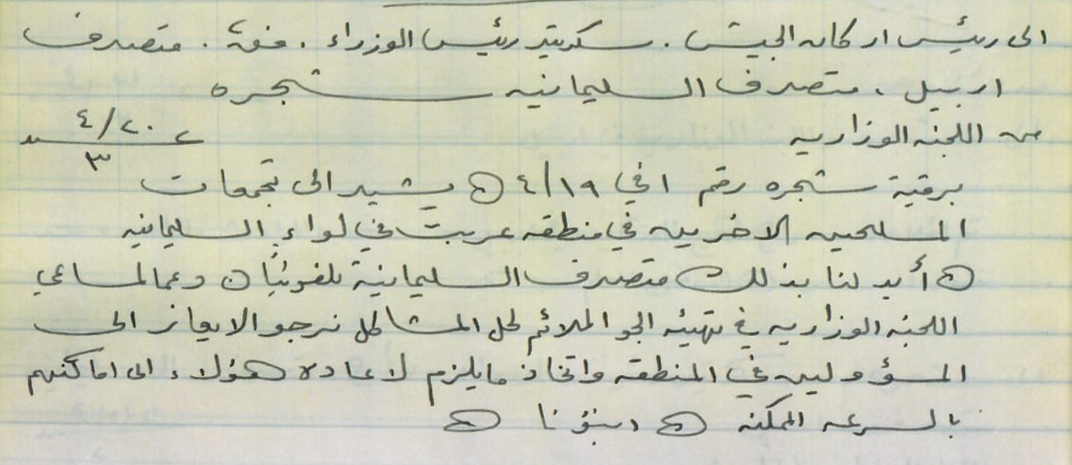 الى رئيس اركان الجيش . سكرتير رئيس الوزراء . فق١ . متصرف
اربيل . متصرف السليمانيه شجره
من اللجنه الوزاريه ٤/٢٠
٣
برقية شجره رقم ١ في ٤/١٩ ه يشير الى تجمعات
المسلحين الاخرين في منطقه عربت في لواء السليمانيه
ه أيد لنا بذلك متصرف السليمانية تلفونياً ه دعما لمساعي
اللجنه الوزاريه في تهيئه الجو الملائم لحل المشاكل نرجو الايعاز الى
المسؤولين في المنطقه واتخاذ مايلزم لاعاده هؤلاء الى اماكنهم
بالسرعه الممكنه ه انبؤنا ه